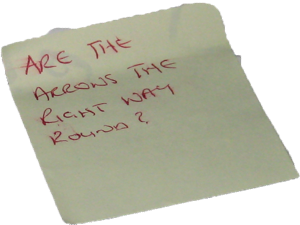 ARE THE
ARROWS THE
RIGHT WAY
ROUND?